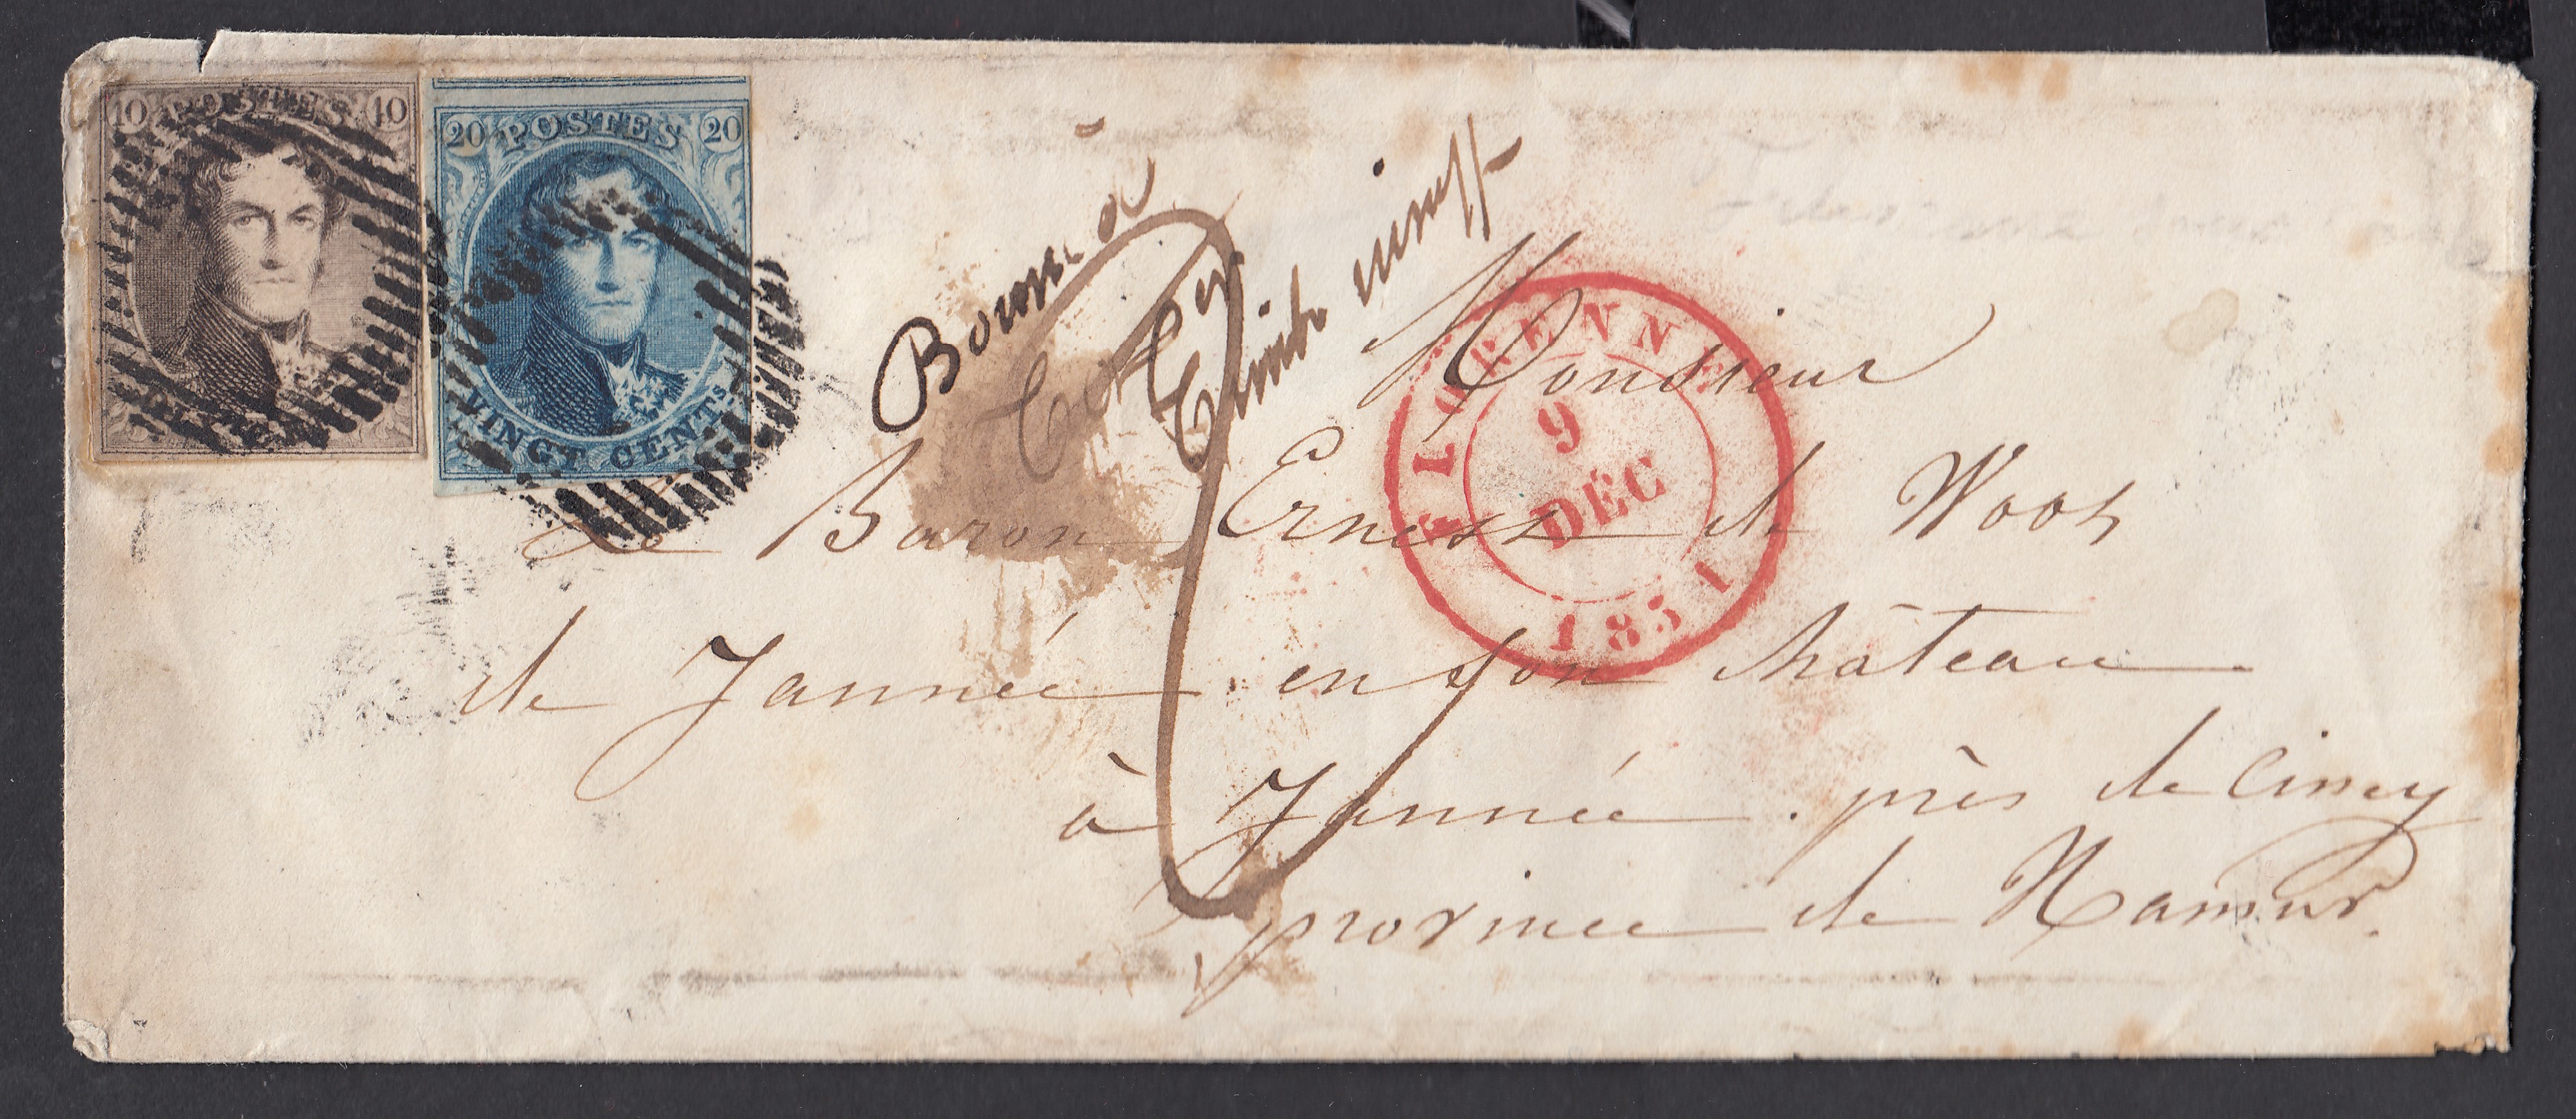 10 POSTES 10
20 POSTES 20
VINGT CENTS
FLORENNES
9
DÉC
1851
Timbre insuff
Monsieur
Le Baron Ernest de Woot
de Jannée en son château
à Jannée. près de Ciney
province de Namur.